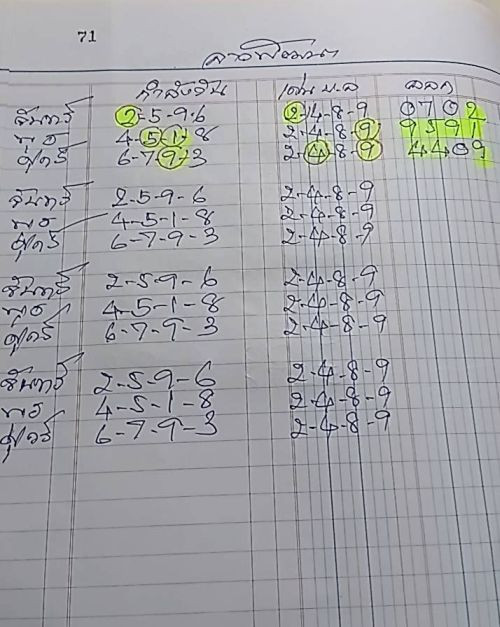 71
ลาวพัฒนา
กำลังวัน เด่น บ.ล ออก
จันทร์ 2-5-9-6 2-4-8-9 0702
พุธ 4-5-1-8 2-4-8-9 9591
ศุกร์ 6-7-9-3 2-4-8-9 4409
จันทร์ 2-5-9-6 2-4-8-9
พุธ 4-5-1-8 2-4-8-9
ศุกร์ 6-7-9-3 2-4-8-9
จันทร์ 2-5-9-6 2-4-8-9
พุธ 4-5-1-8 2-4-8-9
ศุกร์ 6-7-9-3 2-4-8-9
จันทร์ 2-5-9-6 2-4-8-9
พุธ 4-5-1-8 2-4-8-9
ศุกร์ 6-7-9-3 2-4-8-9